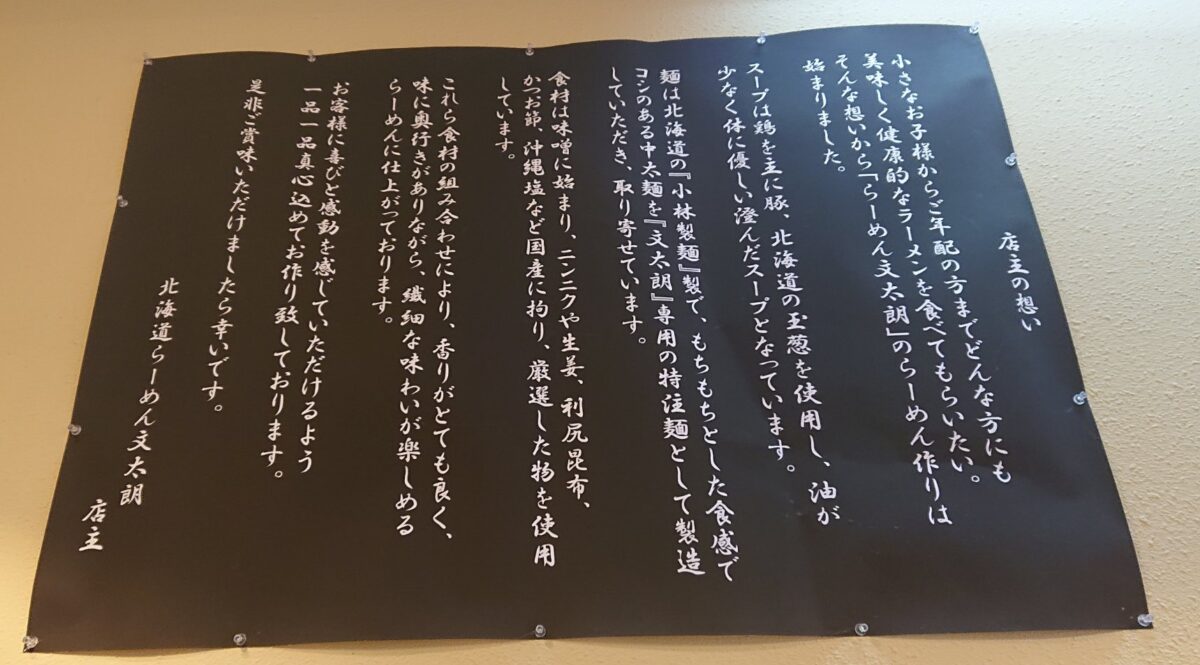 店主の想い
小さなお子様からご年配の方までどんな方にも
美味しく健康的なラーメンを食べてもらいたい。
そんな想いから「らーめん文太朗」のらーめん作りは
始まりました。
スープは鶏を主に豚、北海道の玉葱を使用し、油が
少なく体に優しい澄んだスープとなっています。
麺は北海道の『小林製麺』製で、もちもちとした食感で
コシのある中太麺を『文太朗』専用の特注麺として製造
していただき、取り寄せています。
食材は味噌に始まり、ニンニクや生姜、利尻昆布、
かつお節、沖縄塩など国産に拘り、厳選した物を使用
しています。
これら食材の組み合わせにより、香りがとても良く、
味に奥行きがありながら、繊細な味わいが楽しめる
らーめんに仕上がっております。
お客様に喜びと感動を感じていただけるよう
一品一品真心込めてお作り致しております。
是非ご賞味いただけましたら幸いです。
北海道らーめん文太朗
店主